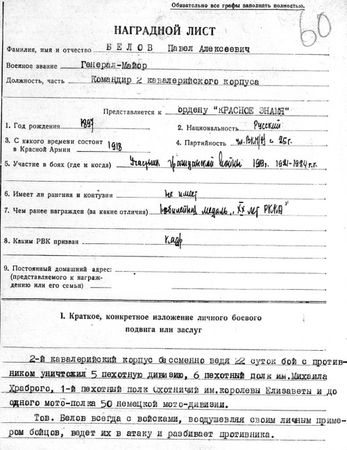 Обязательно все графы заполнять полностью.
60
НАГРАДНОЙ ЛИСТ
Фамилия, имя и отчество БЕЛОВ Павел Алексеевич
Военное звание Генерал-Майор
Должность, часть Командир 2 кавалерийского корпуса
Представляется к ордену "КРАСНОЕ ЗНАМЯ"
1. Год рождения 1897 2. Национальность Русский
3. С какого времени состоит в Красной Армии 1918 4. Партийность
5. Участие в боях (где и когда) Участник гражданской войны
6. Имеет ли ранения и контузии не имеет
7. Чем ранее награжден (за какие отличия) юбилейная медаль "XX лет РККА"
8. Каким РВК призван кадр
9. Постоянный домашний адрес:
(представляемого к награждению или его семьи)
I. Краткое, конкретное изложение личного боевого
подвига или заслуг
2-й кавалерийский корпус бессменно ведя 22 суток бой с против-
ником уничтожил 5 пехотную дивизию, 6 пехотный полк им.Михаила
Храброго, 1-й пехотный полк Охотничий им.королевы Елизаветы и до
одного мото-полка 50 немецкой мото-дивизии.
Тов. Белов всегда с войсками, воодушевляя своим личным приме-
ром бойцов, ведет их в атаку и разбивает противника.